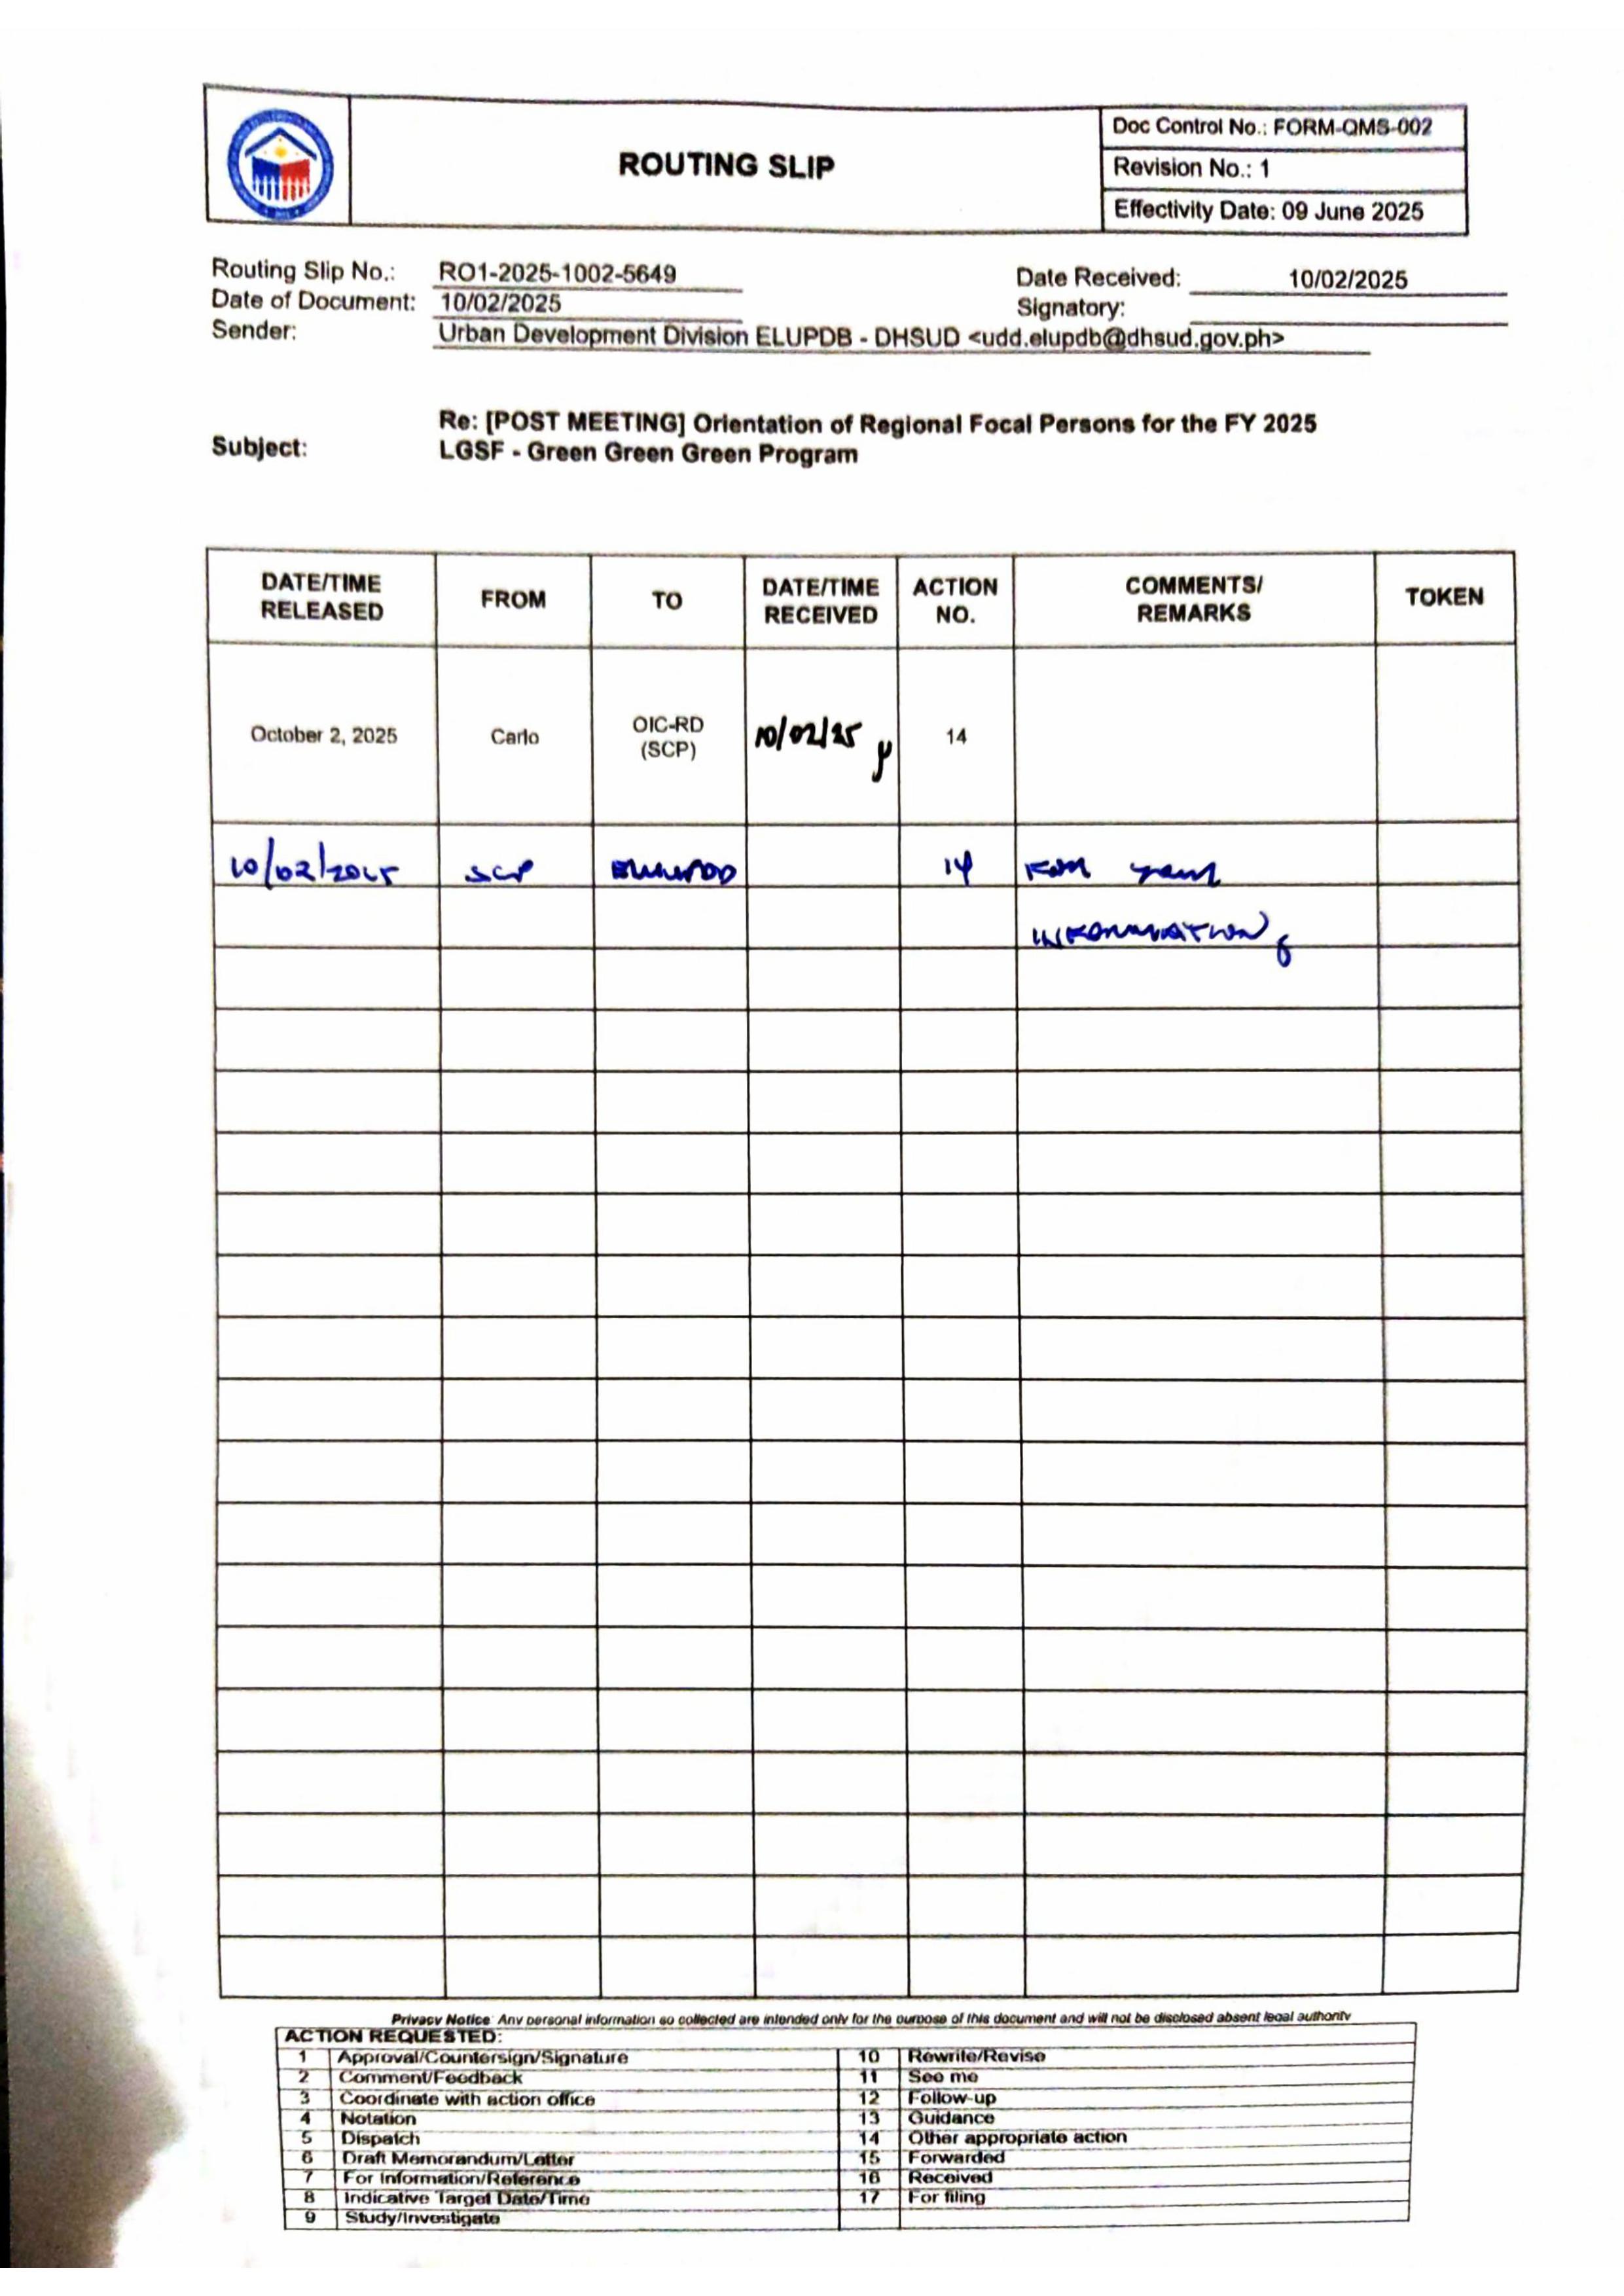 ROUTING SLIP
Doc Control No.: FORM-QMS-002
Revision No.: 1
Effectivity Date: 09 June 2025
Routing Slip No.: RO1-2025-1002-5649
Date Received: 10/02/2025
Date of Document: 10/02/2025
Signatory:
Sender: Urban Development Division ELUPDB - DHSUD <udd.elupdb@dhsud.gov.ph>
Subject: Re: [POST MEETING] Orientation of Regional Focal Persons for the FY 2025
LGSF - Green Green Green Program
DATE/TIME RELEASED FROM TO DATE/TIME RECEIVED ACTION NO. COMMENTS/ REMARKS TOKEN
October 2, 2025 Carlo OIC-RD (SCP) 10/02/25 14
10/02/2025 SCP 14 FOR YOUR
INFORMATION
Privacy Notice: Any personal information so collected are intended only for the purpose of this document and will not be disclosed absent legal authority
ACTION REQUESTED:
1 Approval/Countersign/Signature 10 Rewrite/Revise
2 Comment/Feedback 11 See me
3 Coordinate with action office 12 Follow-up
4 Notation 13 Guidance
5 Dispatch 14 Other appropriate action
6 Draft Memorandum/Letter 15 Forwarded
7 For Information/Reference 16 Received
8 Indicative Target Date/Time 17 For filing
9 Study/Investigate